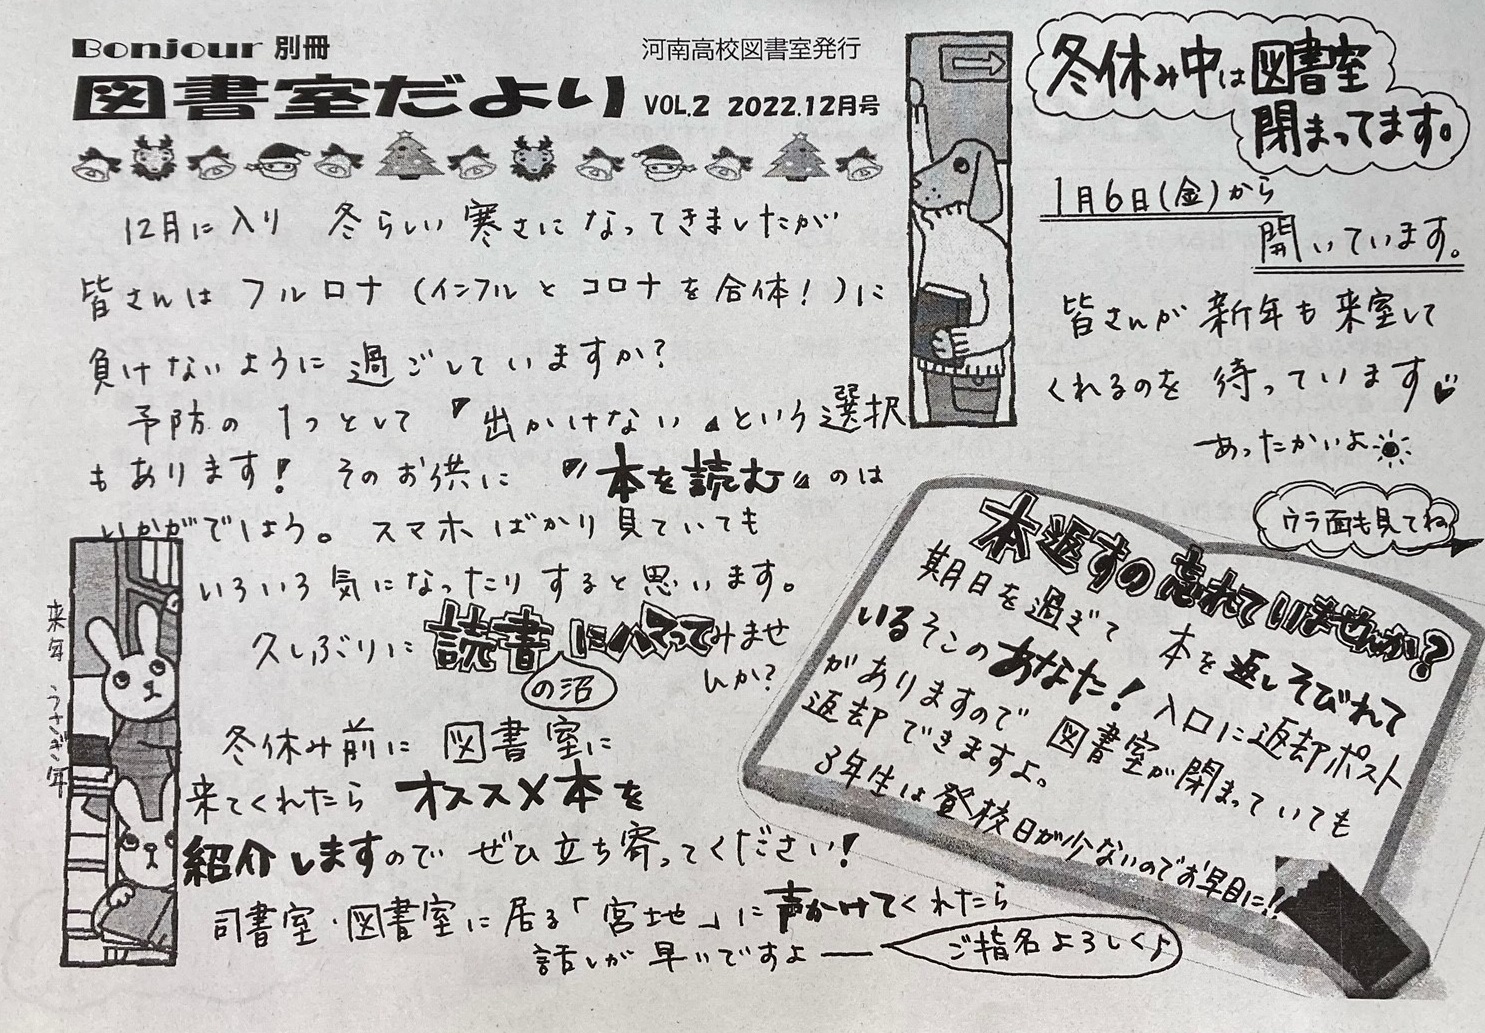 Bonjour 別冊
河南高校図書室発行
図書室だより VOL.2 2022.12月号
12月に入り 冬らしい寒さになってきましたが
皆さんは フルロナ (インフルとコロナを合体!)に
負けないように 過ごしていますか?
予防の 1つとして 『出かけない』という選択
もあります! そのお供に 『本を読む』のは
いかがでしょう。 スマホばかり見ていても
いろいろ気になったりすると思います。
久しぶりに 読書にハマってみませ
んか?
の沼
冬休み前に 図書室に
来てくれたら オススメ本を
紹介しますので ぜひ立ち寄ってください!
司書室・図書室に居る「宮地」に声かけてくれたら
話しが早いですよー
ご指名よろしく♪
来年 うさぎ年
冬休み中は図書室
閉まってます。
1月6日(金)から
開いています。
皆さんが 新年も来室して
くれるのを 待っています♡
あったかいよ
ウラ面も見てね
本返すの忘れていませんか?
期日を過ぎて 本を返しそびれて
いるそこのあなた! 入口に返却ポスト
がありますので 図書室が閉まっていても
返却できますよ。
3年生は登校日が少ないのでお早目に!!